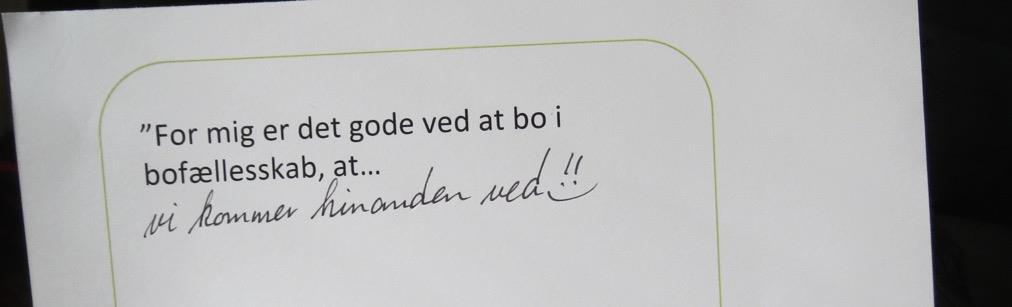 ”For mig er det gode ved at bo i
bofællesskab, at...
vi kommer hinanden ved!!